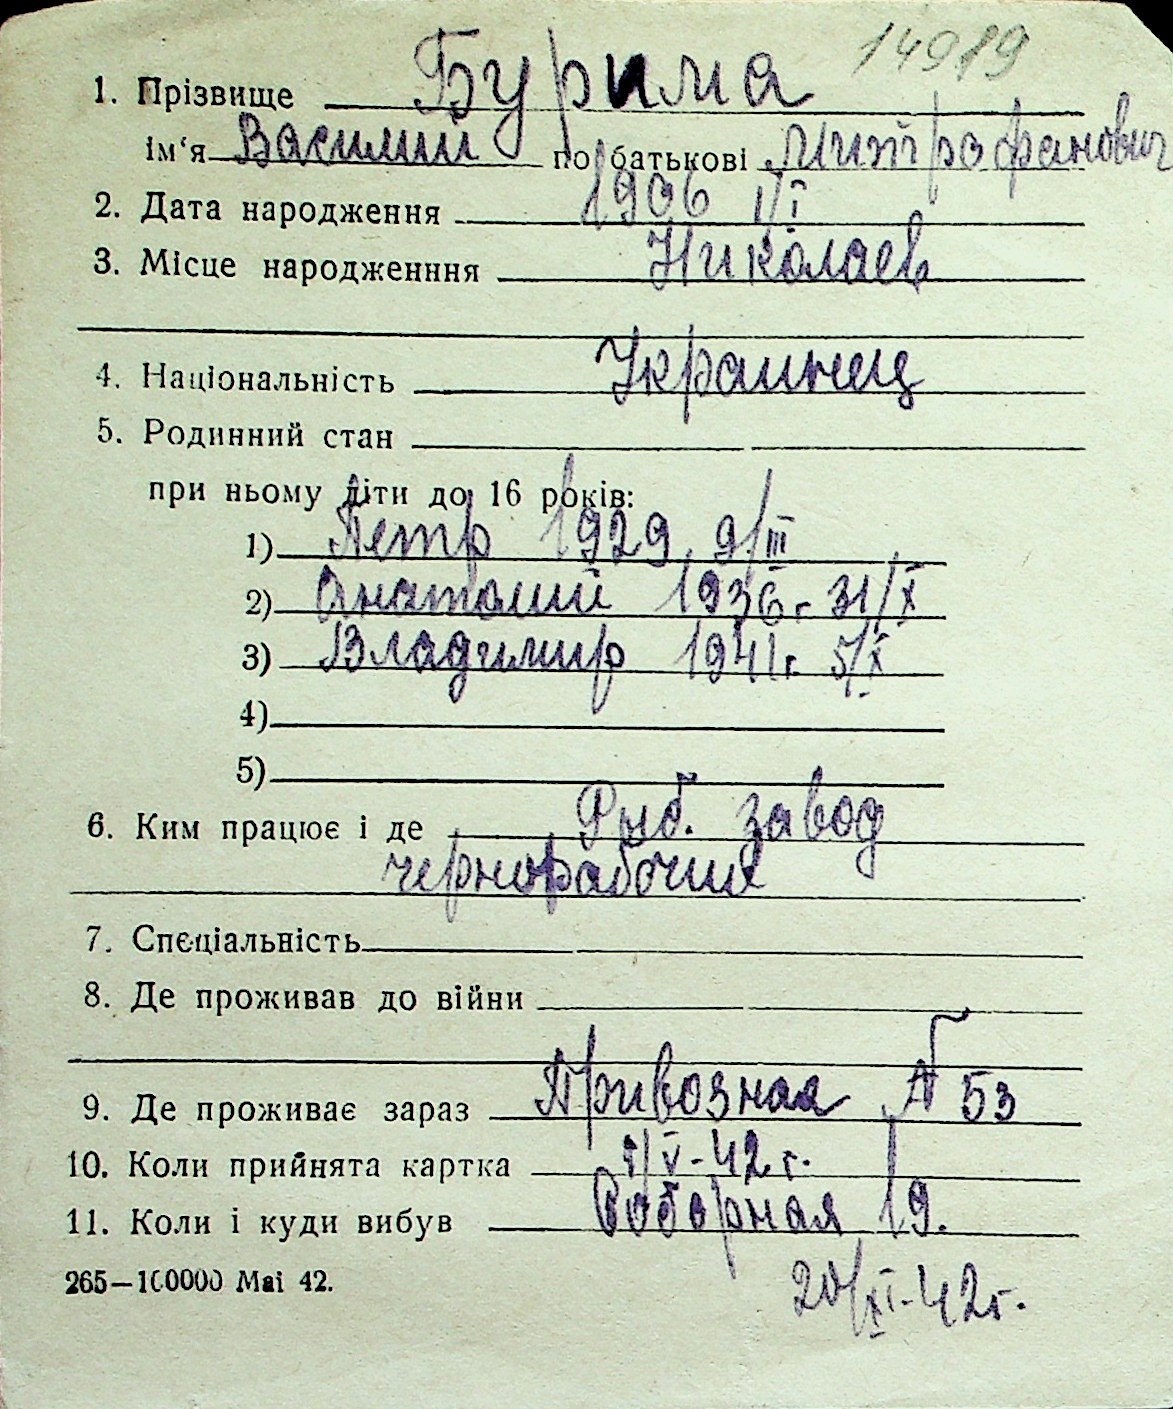 14919
1. Прізвище Бурима
ім‘я Василий по батькові Митрофанович
2. Дата народження 1906 1/I
3. Місце народженння Николаев
4. Національність Украинец
5. Родинний стан
при ньому діти до 16 років:
1) Петр 1929 9/III
2) Анатолий 1936 г. 31/X
3) Владимир 1941 г. 5/X
4)
5)
6. Ким працює і де Рыб. завод
чернорабочий
7. Спєціальність
8. Де проживав до війни
9. Де проживає зараз Привозная № 53
10. Коли прийнята картка /V-42 г.
11. Коли і куди вибув Соборная 19.
265—100000 Маі 42.
20/XI-42 г.